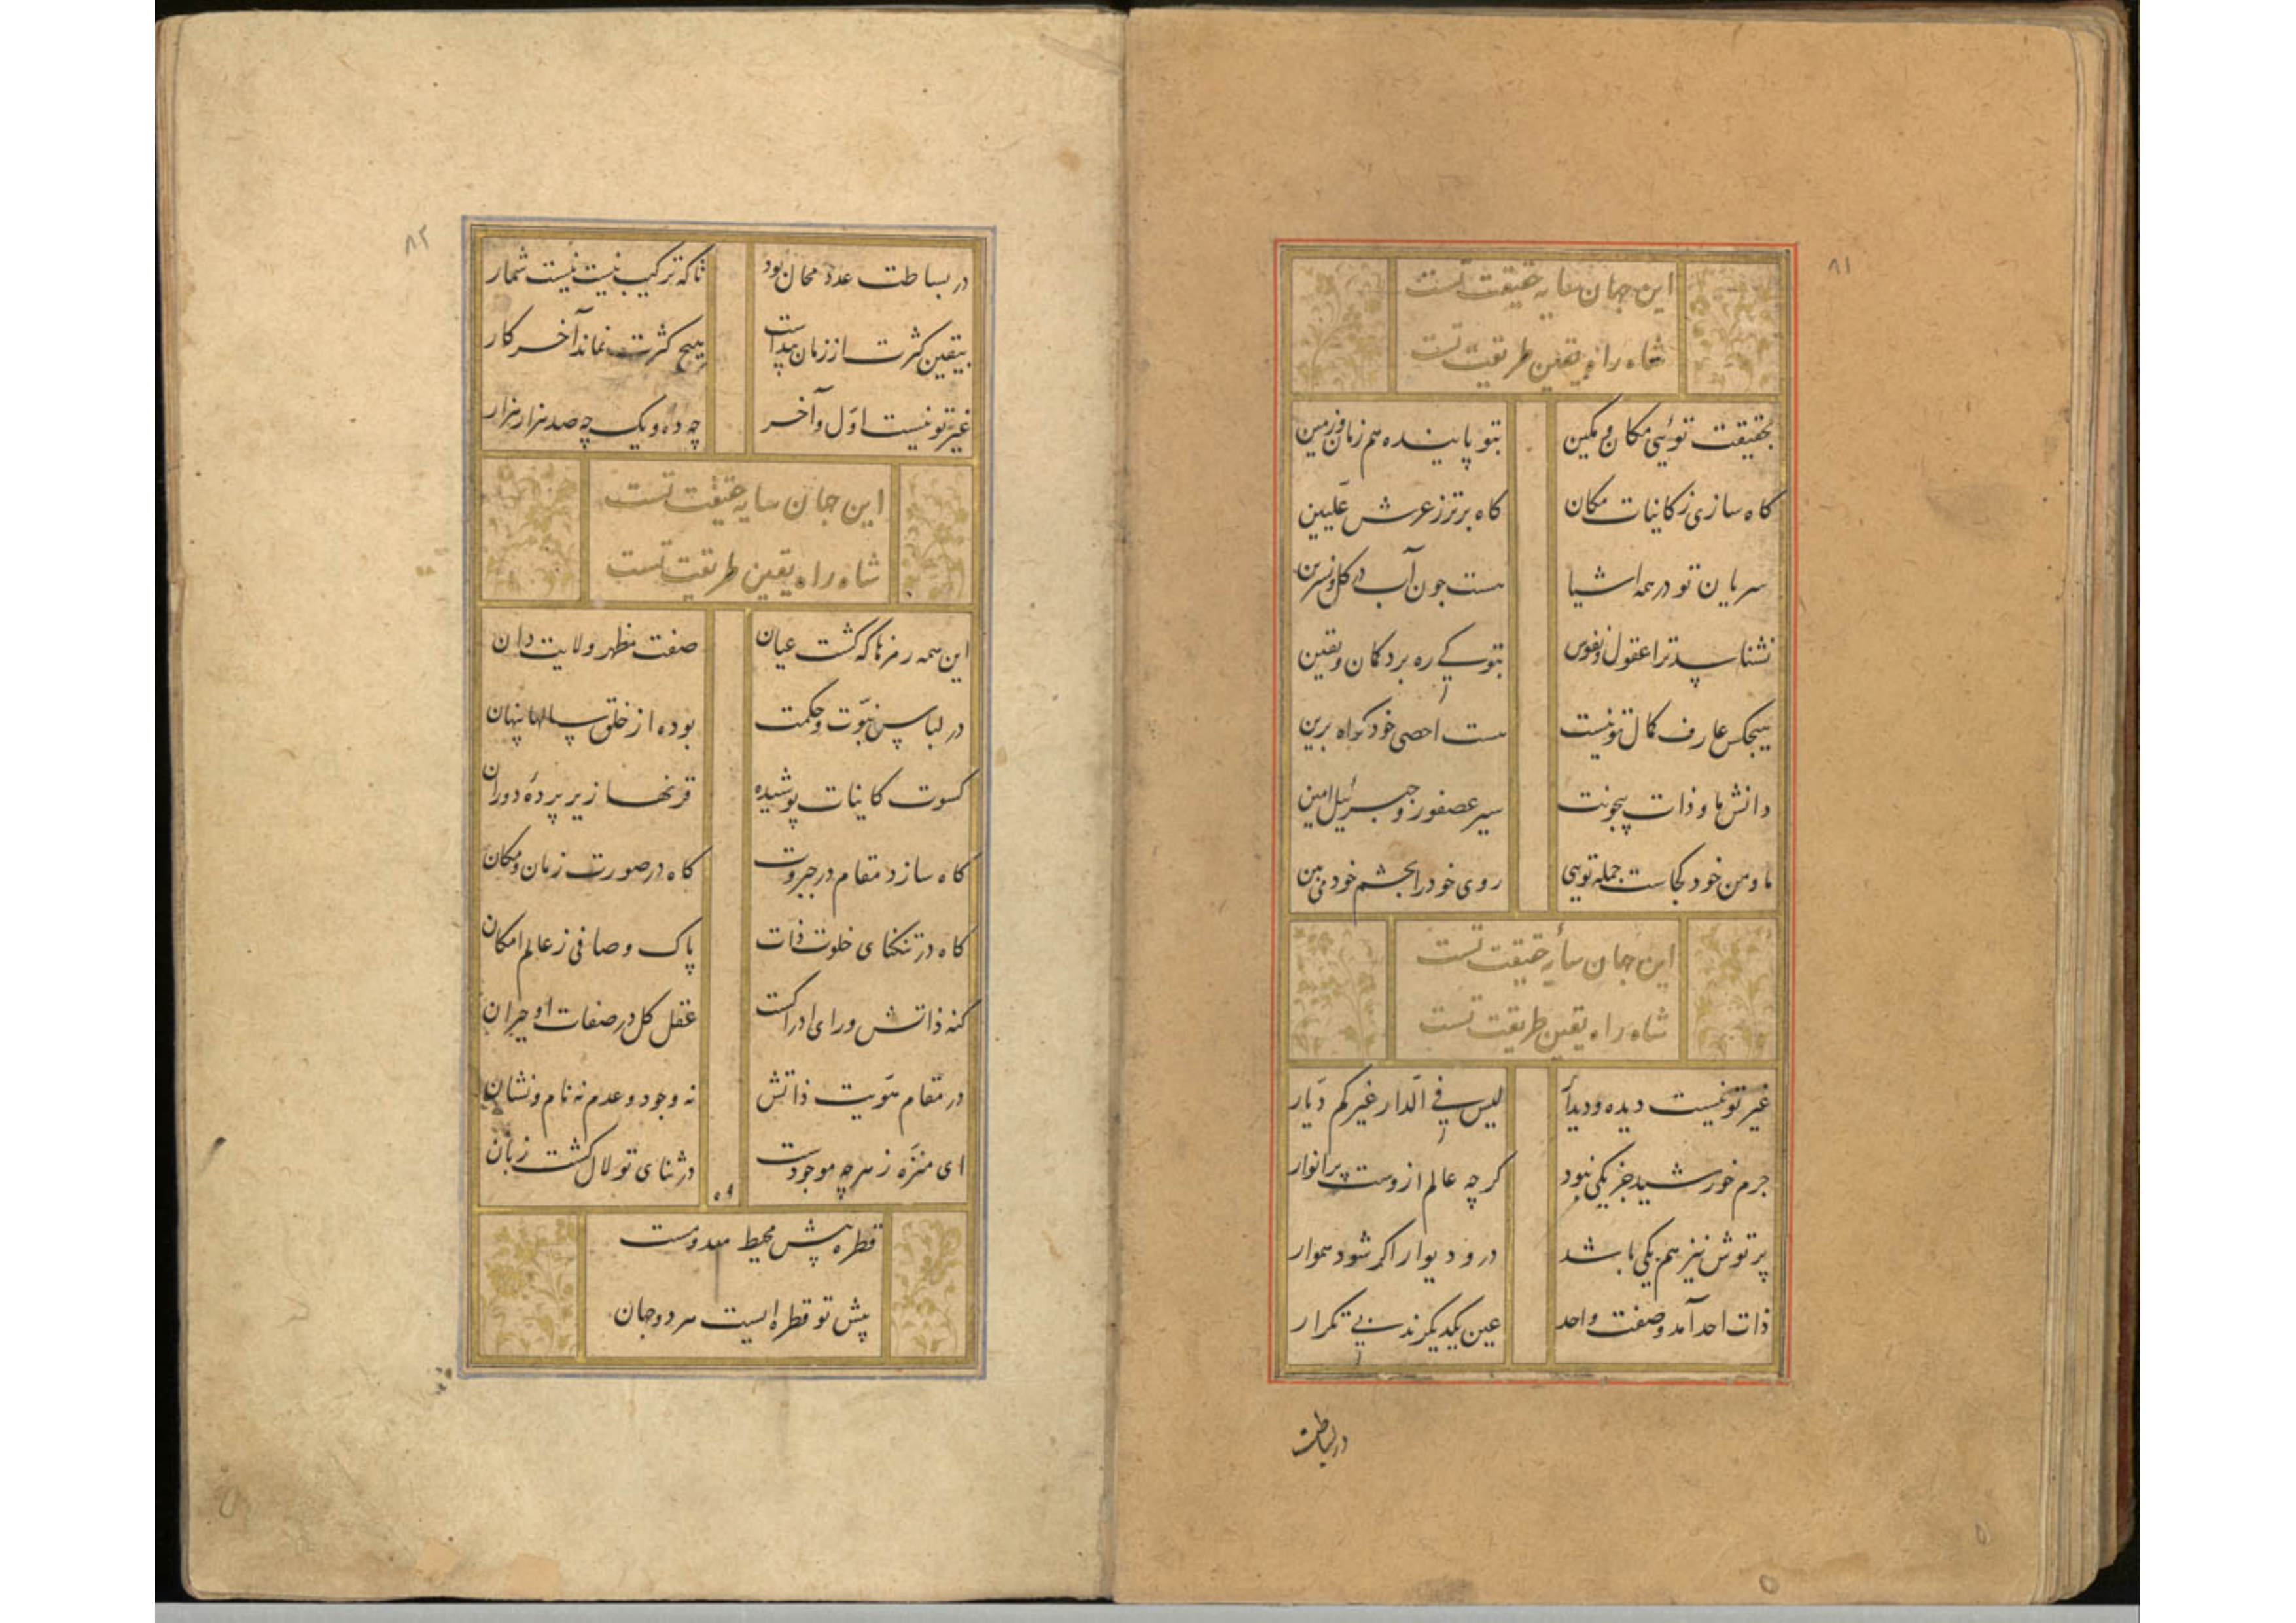 ٨١
این جهان سایه حقیقت تست
شاه راه یقین طریقت تست
بحقیقت توئیی مکان و مکین بتو پاینده هم زمان و زمین
کاه سازی ز کاینات مکان کاه برتر ز عرش علیین
سریان تو در همه اشیا هست جون آب در کل و نسرین
نشناسد ترا عقول و نفوس بتو کے ره برد کمان و یقین
هیجکس عارف کمال تو نیست هست احصی خود کواه برین
دانش ما و ذات بیجونت سیر عصفور و جبرئیل امین
ما و من خود کجاست جمله تویی روی خود را بجشم خود می بین
این جهان سایۀ حقیقت تست
شاه راه یقین طریقت تست
غیر تو نیست دیده و دیدار لیس فے الدار غیرکم دیّار
جرم خورشید جز یکی نبود کرچه عالم ازوست پر انوار
پرتوش نیز هم یکی باشد در و دیوار اکر شود هموار
ذات احد آمد و صفت واحد عین یکدیکرند بے تکرار
در بساطت
٨٢
در بساطت عدد محال بود تا که ترکیب نیست نیست شمار
بیقین کثرت از زمان پیداست هیچ کثرت نماند آخر کار
غیر تو نیست اوّل و آخر چه ده و یک چه صد هزار هزار
این جهان سایه حقیقت تست
شاه راه یقین طریقت تست
این همه رمزها که کشت عیان صفت مظهر ولایت دان
در لباس نبوّت و حکمت بوده از خلق سالها پنهان
کسوت کاینات پوشیده قرنها زیر پردۀ دوران
کاه سازد مقام در جبروت کاه در صورت زمان و مکان
کاه در تنکنای خلوت ذات پاک و صافی ز عالم امکان
کنه ذاتش ورای ادراکست عقل کل در صفات او حیران
در مقام هویت ذاتش نه وجود و عدم نه نام و نشان
ای منزّه ز هرچه موجودست در ثنای تو لال کشت زبان
قطره پیش محیط معدومست
پیش تو قطره ایست هر دو جهان